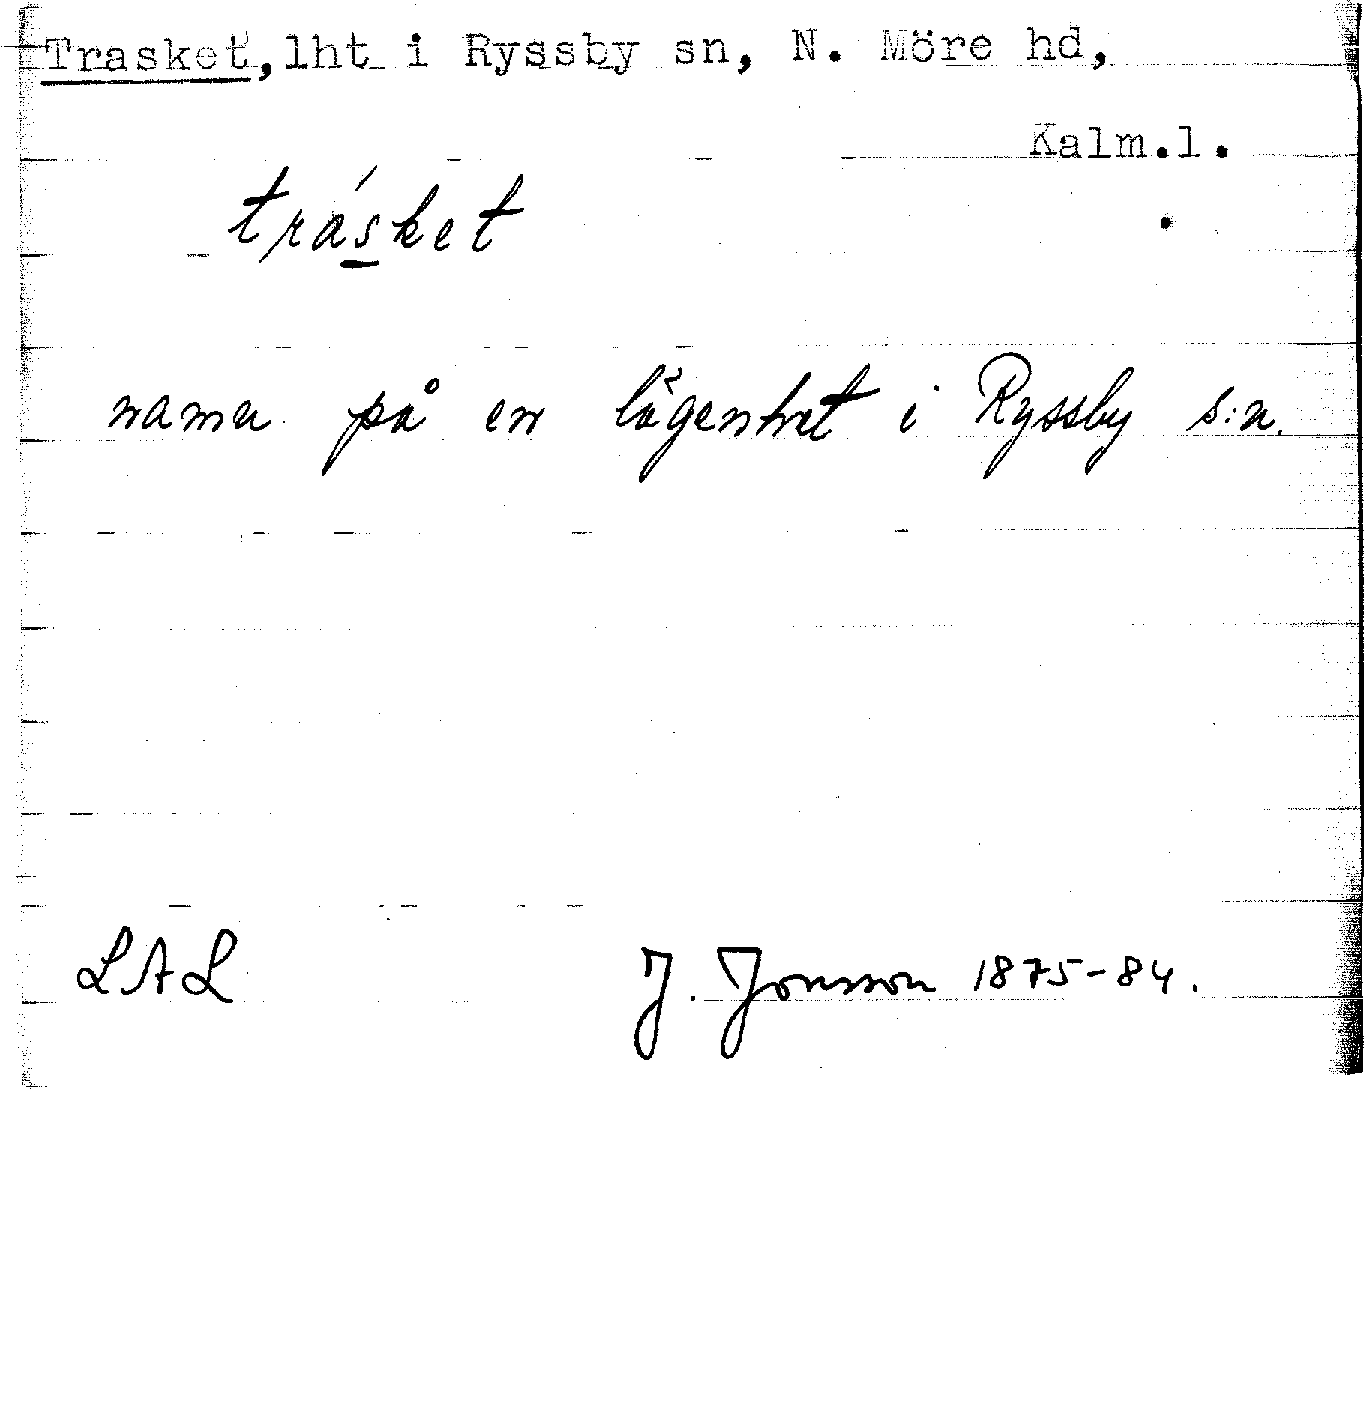 Trasket, lht i Ryssby sn, N. Möre hd,
Kalm.l.
trásket
namn på en lägenhet i Ryssby s:n.
LAL J. Jonsson 1875-84.